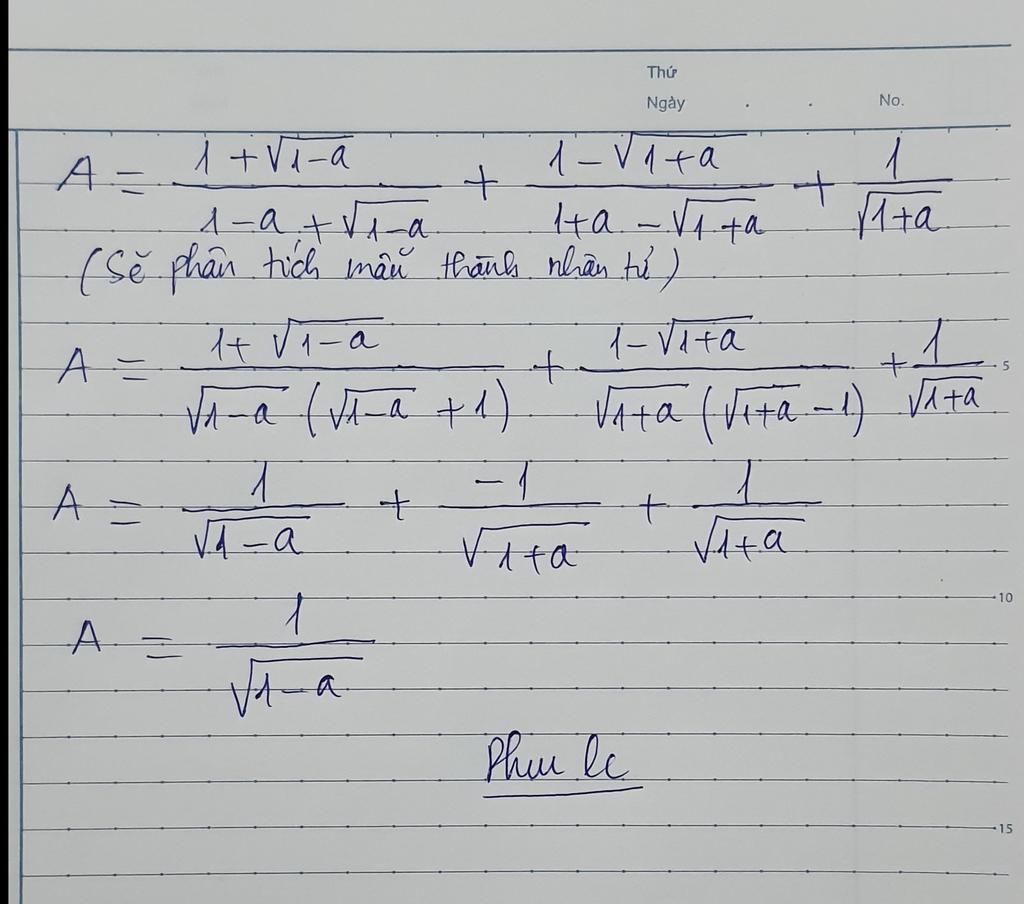 Thứ
Ngày . . No.
A = \frac{1+\sqrt{1-a}}{1-a+\sqrt{1-a}} + \frac{1-\sqrt{1+a}}{1+a-\sqrt{1+a}} + \frac{1}{\sqrt{1+a}}
(Sẽ phân tích mẫu thành nhân tử)
A = \frac{1+\sqrt{1-a}}{\sqrt{1-a}(\sqrt{1-a}+1)} + \frac{1-\sqrt{1+a}}{\sqrt{1+a}(\sqrt{1+a}-1)} + \frac{1}{\sqrt{1+a}}
5
A = \frac{1}{\sqrt{1-a}} + \frac{-1}{\sqrt{1+a}} + \frac{1}{\sqrt{1+a}}
10
A = \frac{1}{\sqrt{1-a}}
15